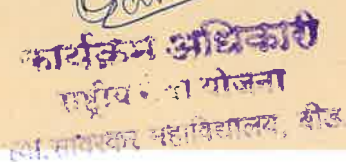 कार्यक्रम अधिकारी
राष्ट्रीय सेवा योजना
स्वा. सावरकर महाविद्यालय, बीड.